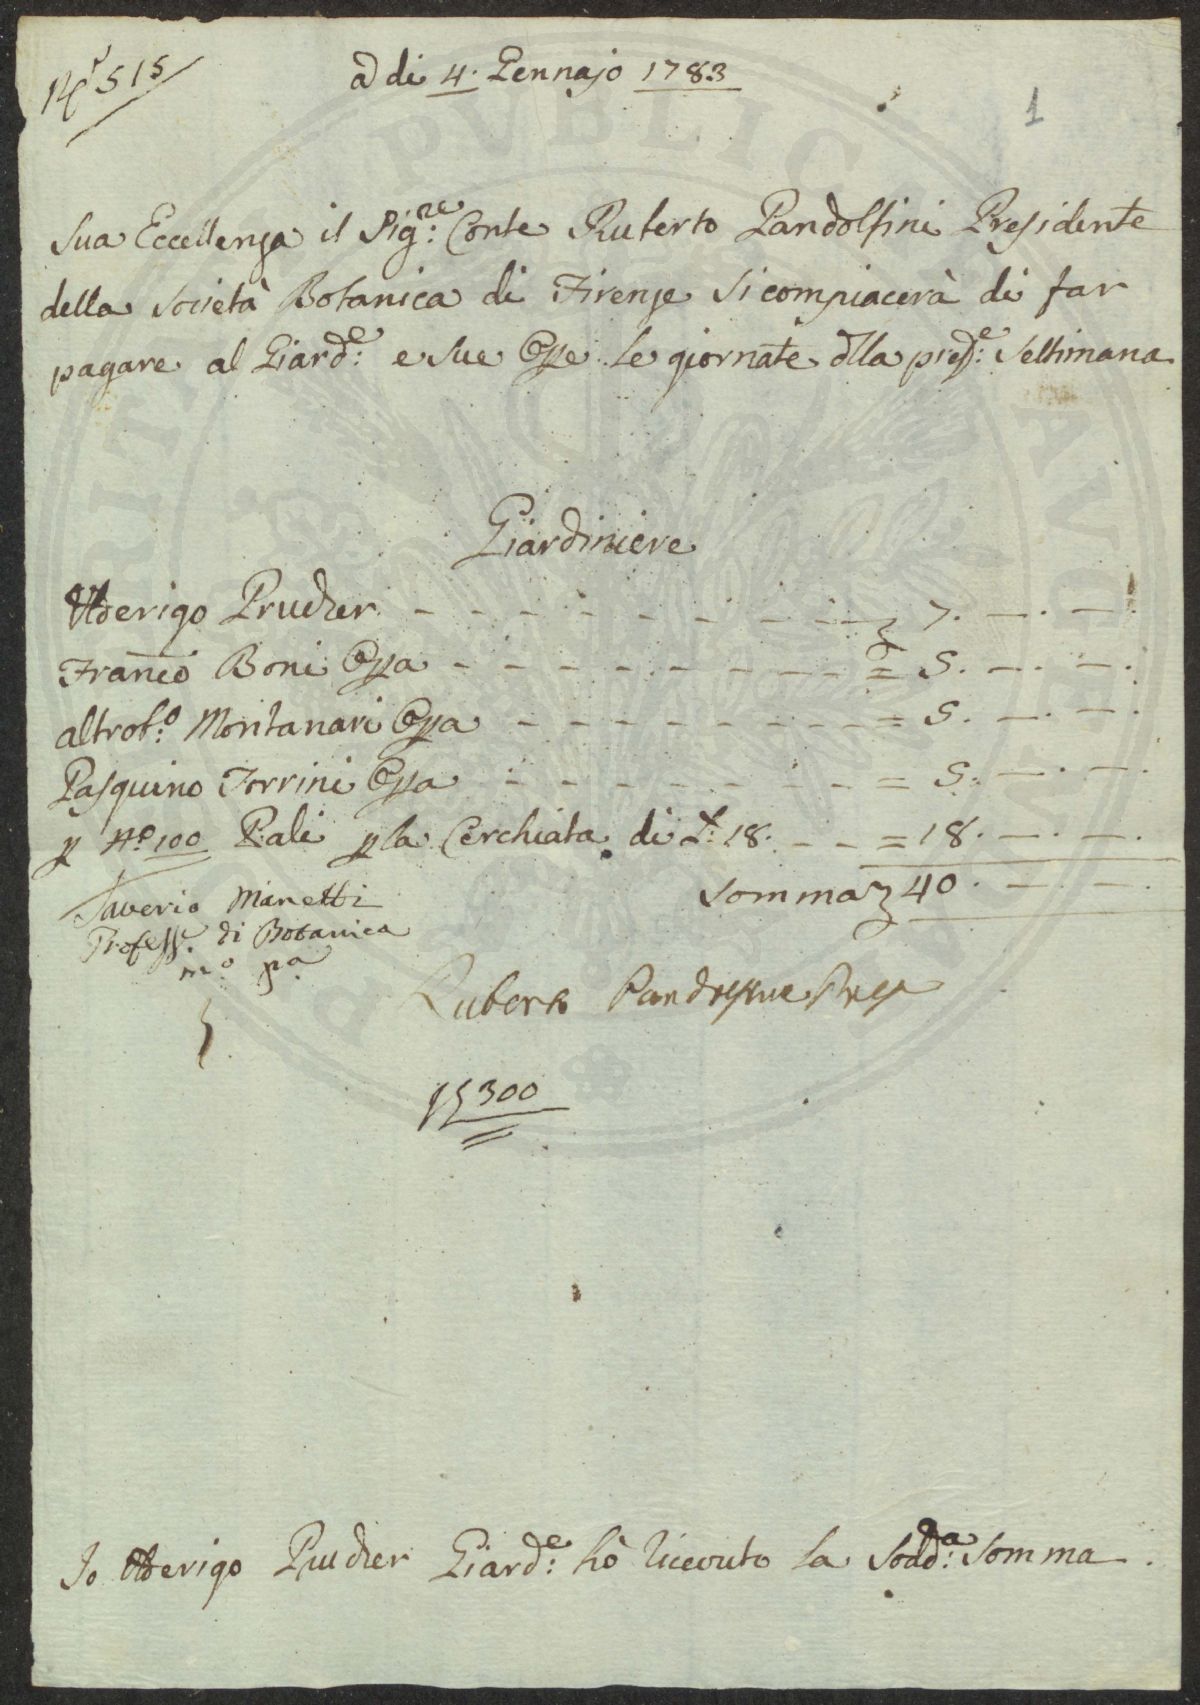 515
1
a di 4. Gennajo 1783
Sua Eccellenza il Sig:re Conte Ruberto Pandolfini Presidente
della Società Botanica di Firenze si compiacerà di far
pagare al Giard:e e sue Opre le giornate dlla pred:e Settimana
Giardiniere
Ulderigo Prucher - - - - - - - - - 7. —. —.
Franco Boni Opra - - - - - - - - = 5. —. —.
altrof:o Montanari Opra - - - - - - - = 5. —. —.
Pasquino Torrini Opra - - - - - - - = 5. —. —.
p N:o 100 Pali p la Cerchiata di L: 18. - - = 18. —. —.
Somma 40. —. —.
Saverio Manetti
Profess:e di Botanica
m:o p:a
Ruberto Pandolfini Pres
300
Io Ulderigo Prucher Giard:e hò riceuto la Sodd:a Somma.
PVBLIC